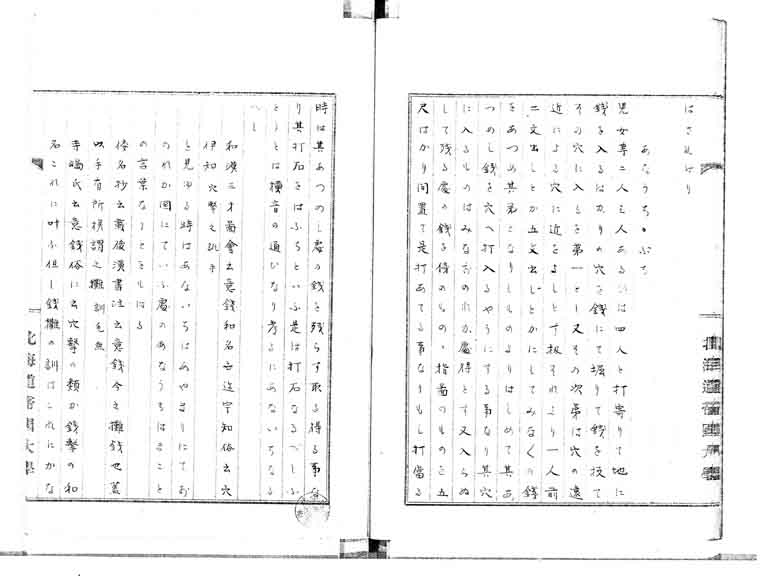 はされけり
あなうち　ぶち
児女専二人三人あるひは四人と打寄りて地に
銭を入るはかりの穴を銭にて掘りて銭を投て
その穴に入るを第一とし又その次第は穴の遠
近による穴に近をよしとす扨それより一人前
二文出しとか五文出しとかにしてみなくの銭
をあつめ其第になりしものよりはしめて其あ
つめし銭を穴へ打入るやうにする事なり其穴
に入るものはみなおのれか處得とす又入らぬ
して残る處の銭を待のもの、指南のものこ五
尺はかり向置て是打あてる事なりもし打當る
時は其あつのし處の銭を残らす取る得る事な
り其打石をはぶちといふ是は打石なるべしふ
とうとは横音の通ひなり考るにあないちなる
へし
和漢三才圖會云意銭和名云世宇知俗云穴
伊知　穴撃之訛乎
と見ゆる時はあないちはあやまりにてお
のれか国にていふ處のあなうちはまこと
の言葉なりとそしはる
倭名抄云兼後漢書注云意銭今之攤銭也蓋
以手有所撰謂之攤　訓毛無
寺嶋氏云意銭俗に云穴撃の類か銭撃の和
名これに叶ふ但し銭攤の訓はこれにかな
北海道帝国大學